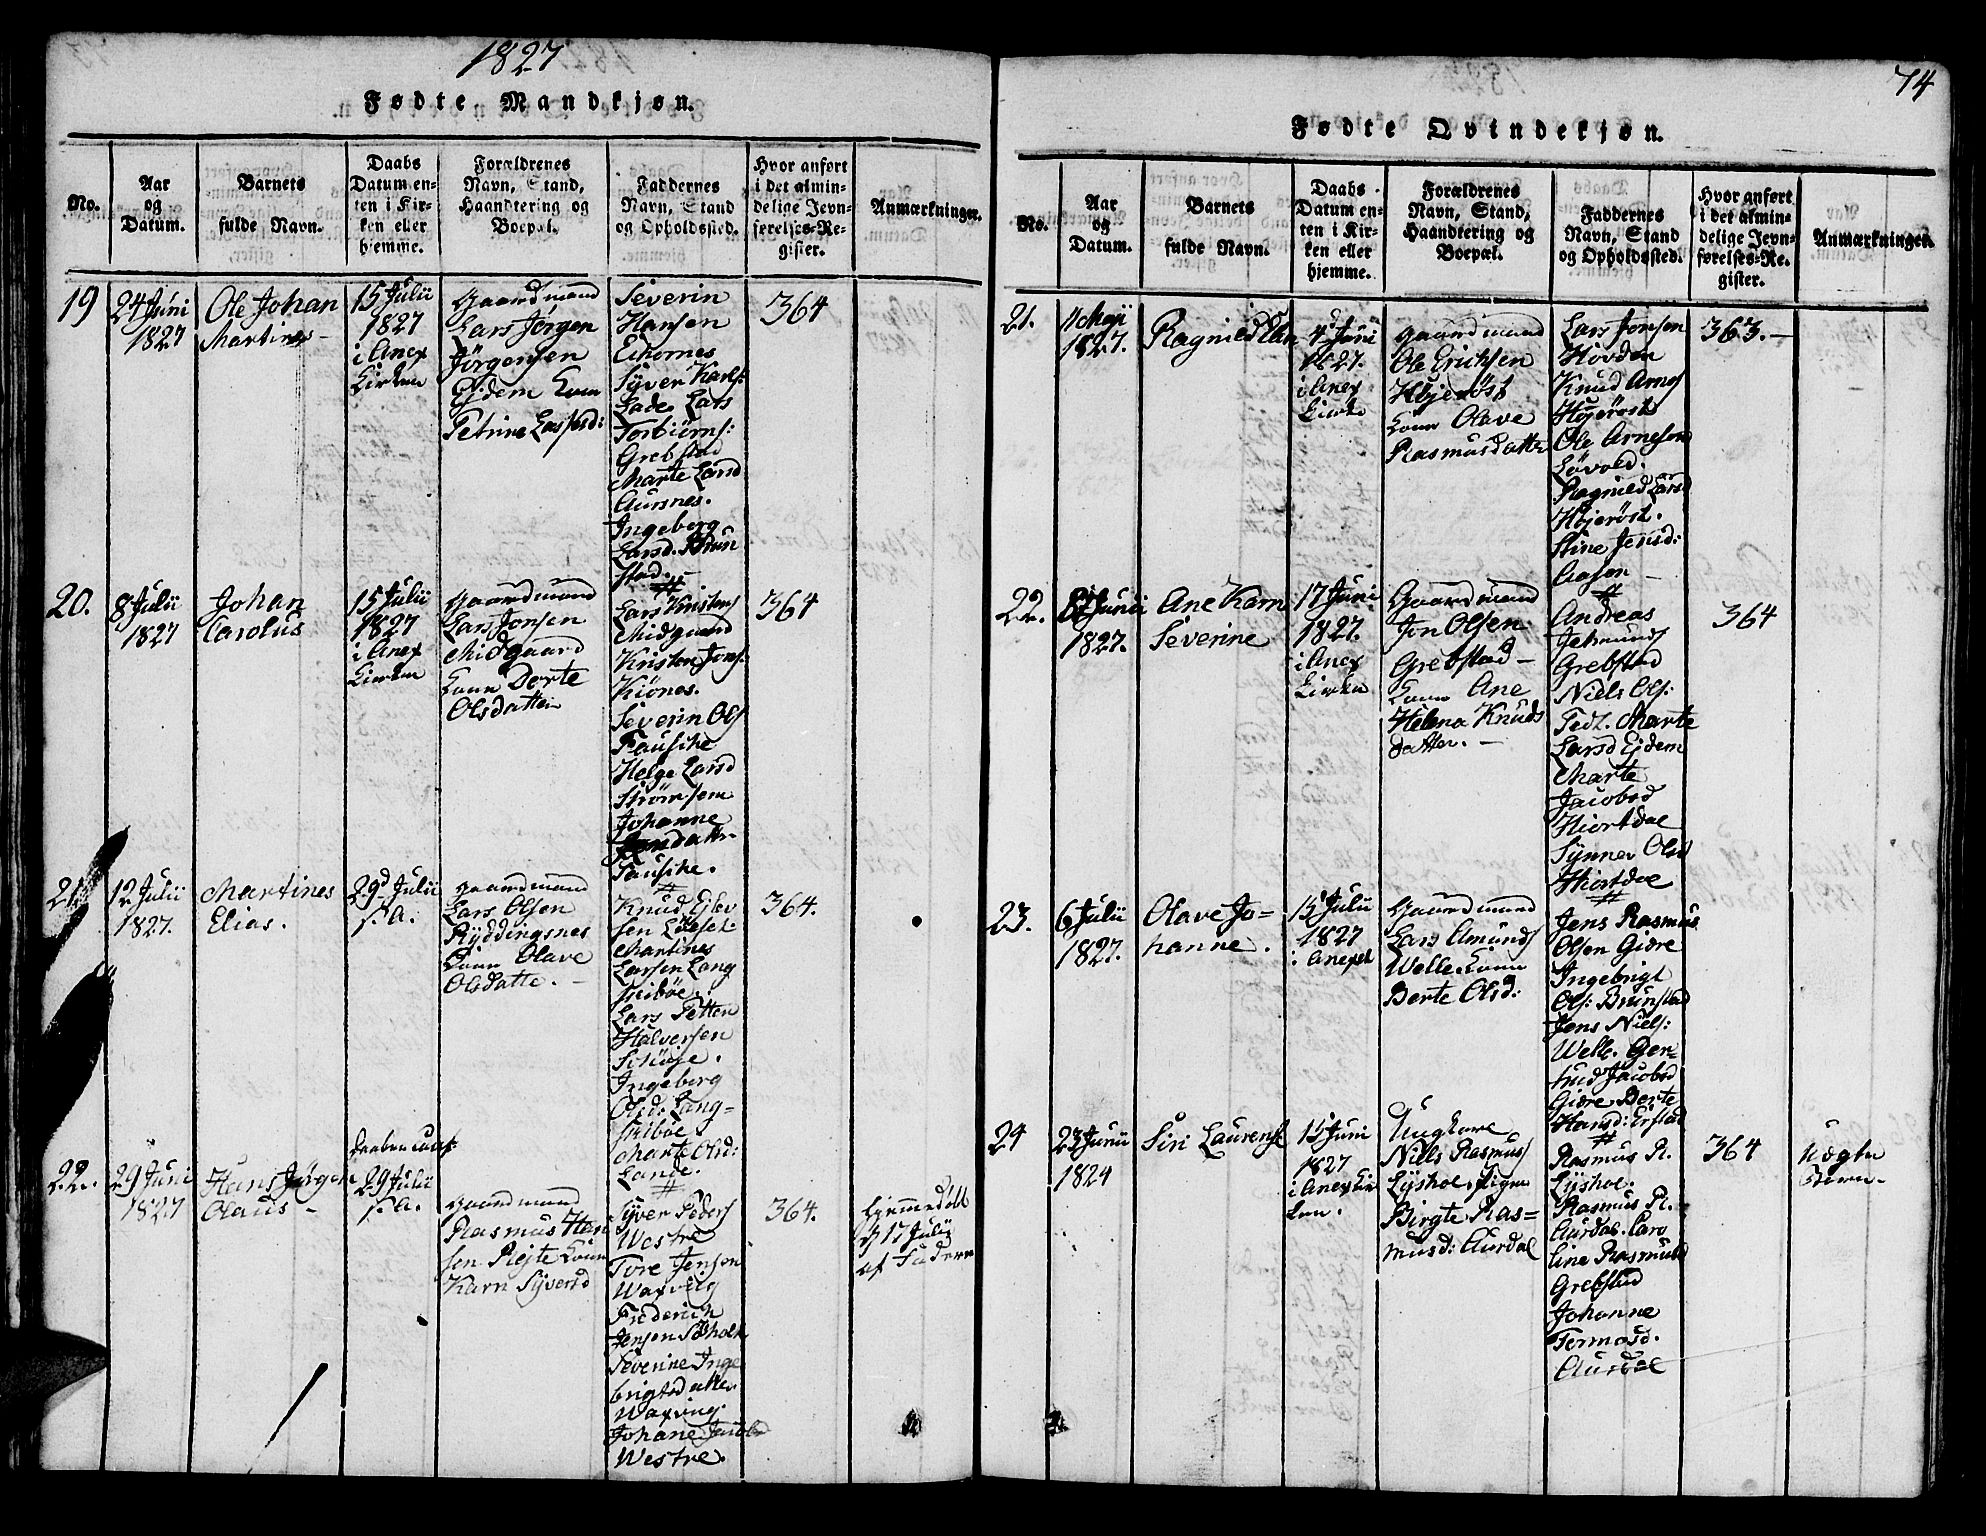 1827
Fødte Mandkjøn.
No.
Aar
og
Datum.
Barnets
fulde Navn.
Daabs
Datum en-
ten i Kir-
ken eller
hjemme.
Forældrenes
Navn, Stand,
Haandtering og
Boepæl.
Faddernes
Navn, Stand
og Opholdssted.
Hvor anført
i det almin-
delige Jevn-
førelses-Re-
gister.
Anmærkninger.
19
24 Juni
1827
Ole Johan
Martines
15 Julii
1827
i Anex
Kirken
Gaardmand
Lars Jørgen
Jørgensen
Ejdem Kone
Petrine Larsd:
Severin
Hansen
Eikornes
Syver Karls:
Lade. Lars
Torbiørns:
Grebstad
Marte Larsd
Aursnes.
Ingeberg
Larsd. Brun
stad.
364
20.
8 Julii
1827
Johan
Carolus
15 Julii
1827
i Anex
Kirken
Gaardmand
Lars Jonsen
Midgaard
Kone Dorte
Olsdatter
Lars Knistens
Midgaard
Kristen Jons:
Kiönes.
Severin Ols
Fauske
Helge Larsd
Strömsem
Johanne
Fauske.
364
21.
12 Julii
1827.
Martines
Elias.
29d Julii
s. A.
Gaardmand
Lars Olsen
Ryddingsnes
Kone Olave
Olsdatte.
Knud Ejlev
sen Løeset.
Martines
Larsen Lang
skibøe.
Lars Petter
Halversen
Ingeberg
Olsd: Lang-
skibøe
Marte Olsd:
Lande.
364.
22.
29 Juni
1827
Hans Jørgen
Olaus
29 Julii
s. A.
Gaardmand
Rasmus Han
sen Rejte Kone
Karn Syversd
Syver Peders
Westre
Tore Jensen
Waxvig
Frederich
Jensen Søholt
Severine Inge
brigtsdatter
Waxvig.
Johane Jacobs
Westre.
364.
Hjemmedøbt
d 17 Julii
af Faderen
74
Fødte Qvindekjøn.
No.
Aar
og
Datum.
Barnets
fulde Navn.
Daabs
Datum en-
ten i Kir-
ken eller
hjemme.
Forældrenes
Navn, Stand,
Haandtering og
Boepæl.
Faddernes
Navn, Stand
og Opholdssted.
Hvor anført
i det almin-
delige Jevn-
førelses-Re-
gister.
Anmærkninger.
21.
11 Maji
1827.
Ragnild
4d Juni
1827.
i Anex
Kirke
Gaardmand
Ole Erichsen
Højeröst
Kone Olave
Rasmusdatte
Lars Jonsen
Hovden
Knud Arnes
Højeröst
Ole Arnesen
Løvold.
Ragnild Larsd
Højeröst.
Stine Jensd:
Aasen
363.
22.
Junii
1827.
Ane Karn
Severine
17 Juni
1827.
i Anex
Kirken
Gaardmand
Jon Olsen
Grebstad
Kone Ane
Helena Knuds
datter.
Andreas
Jetmunds
Grebstad
Niels Ols:
Fedt. Marte
Larsd Ejdem
Marte
Jacobsd
Hiortdal
Synner Olsd
Hiortdal
364
23.
6 Julii
1827.
Olave Jo-
hanne.
15 Julii
1827
i Anexet
Gaardmand
Lars Amunds
Welle. Kone
Berte Olsd:
Jens Rasmus
Olsen Giære
Ingebrigt
Ols: Brunstad
Jens Niels:
Welle. Ger-
trud Jacobsd
Giære. Berte
Hansd: Erstad
24
23 Junii
1824
Siri Laurense
15 Juni
1827
i Anex Kir
ken.
Ungkare
Niels Rasmus
Lyshol. Pigen
Birgte Ras-
musd: Aurdal
Rasmus R.
Lyshol.
Rasmus R.
Aurdal. Caro
line Rasmusd
Grebstad
Johanne
Tormosd.
Aurdal
364
Uægte
Barn.